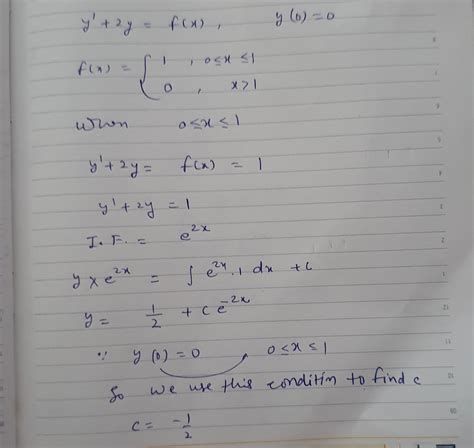 y' + 2y = f(x), y(0) = 0
f(x) = { 1 , 0≤x≤1
0 , x>1
When 0≤x≤1
y' + 2y = f(x) = 1
y' + 2y = 1
I.F. = e^{2x}
y × e^{2x} = ∫ e^{2x}.1 dx + c
y = 1/2 + c e^{-2x}
∵ y(0) = 0 0≤x≤1
So we use this condition to find c
c = -1/2